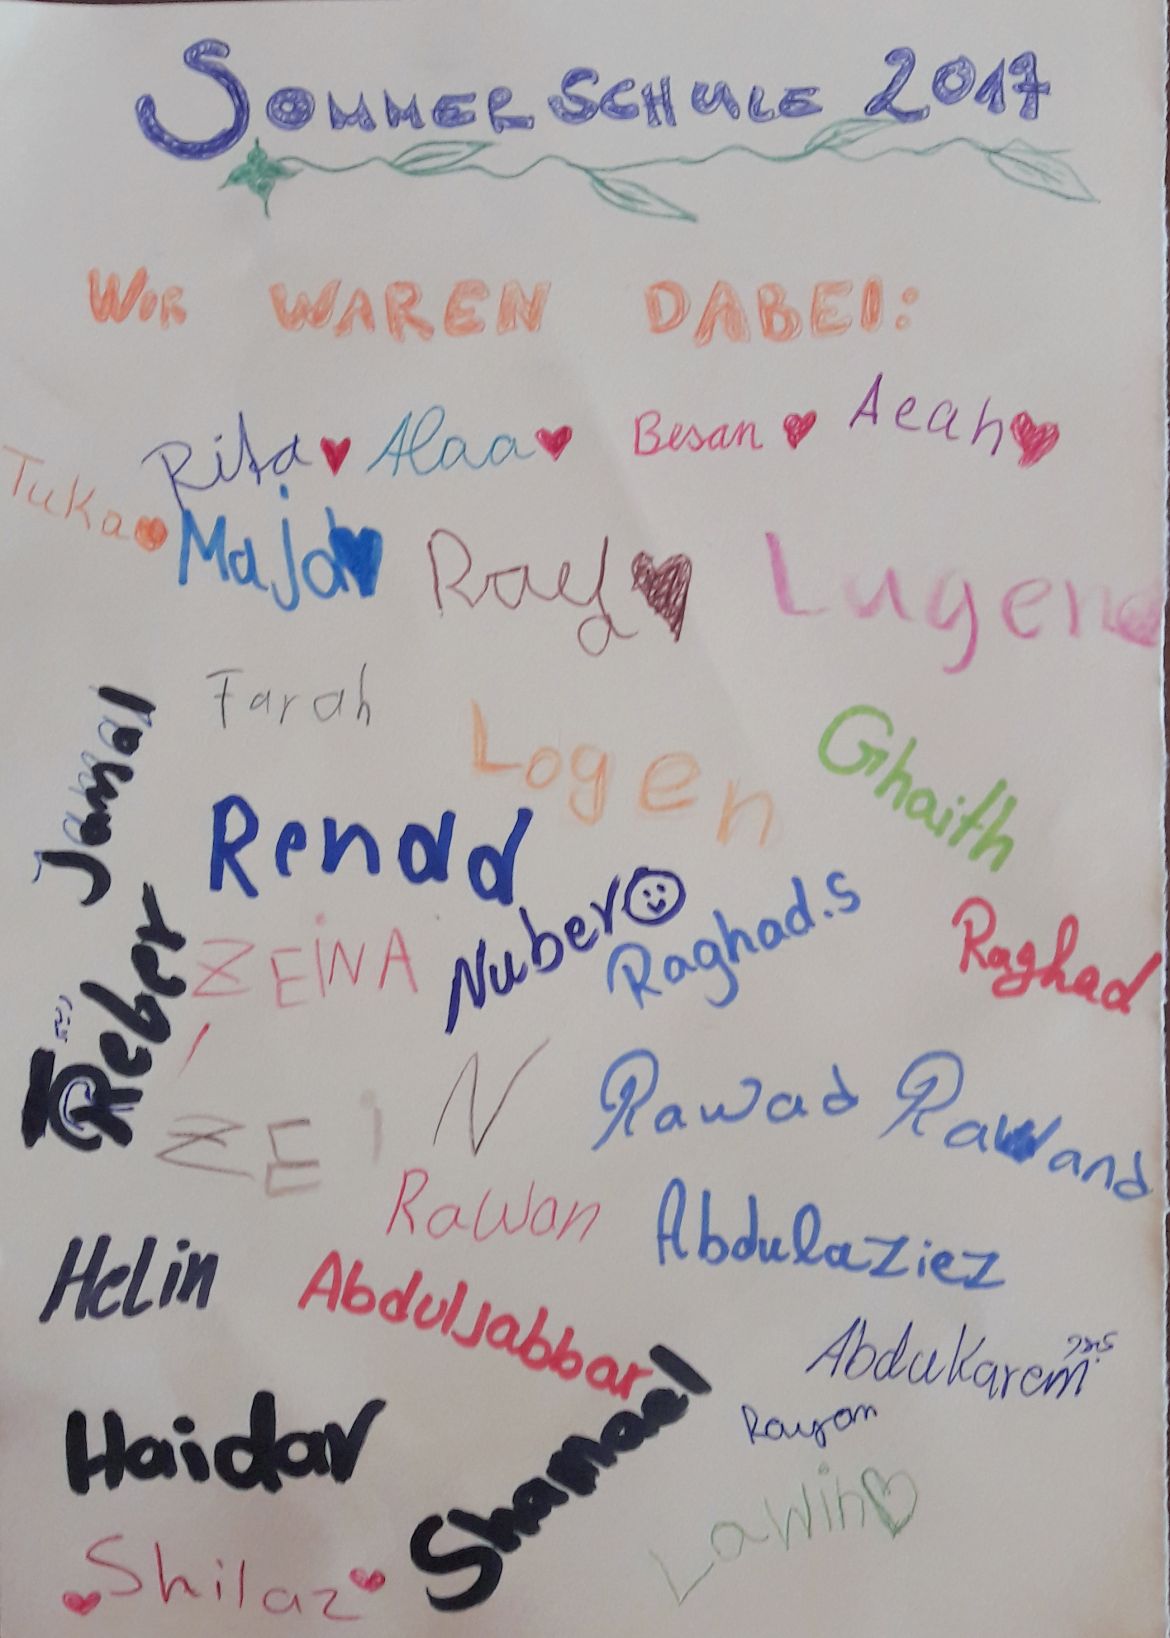 SOMMERSCHULE 2017
WIR WAREN DABEI:
Rita Alaa Besan Aeah
Tuka Majd Lugen
Farah
Jamal Logen Ghaith
Renad
Reber ZEINA Nuber Raghad.S Raghad
ZEIN Rawad Rawand
Rawan Abdulaziez
Helin Abduljabbar
Abdukarem
Haidar Shamael Rayan
Lawin
Shilaz